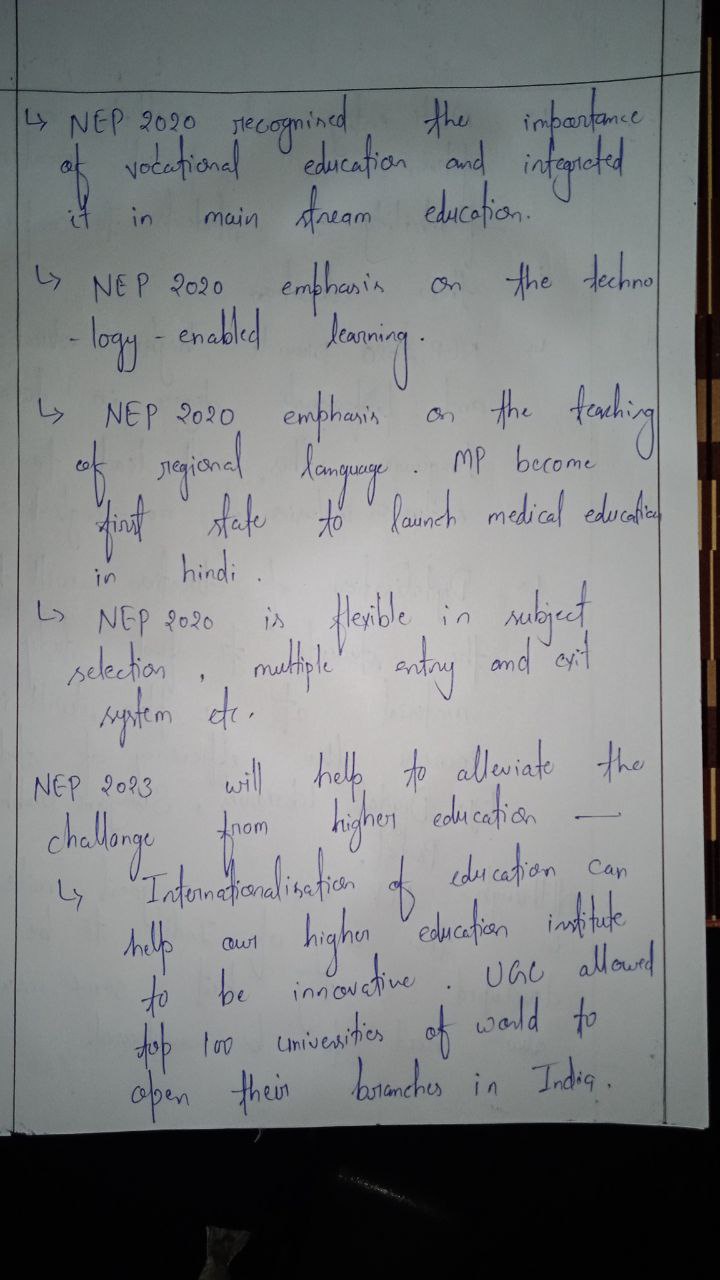 ↳ NEP 2020 recognised the importance
of vocational education and integrated
it in main stream education.
↳ NEP 2020 emphasis on the techno
- logy - enabled learning.
↳ NEP 2020 emphasis on the teaching
of regional language. MP become
first state to launch medical education
in hindi.
↳ NEP 2020 is flexible in subject
selection, multiple entry and exit
system etc.
NEP 2023 will help to alleviate the
challange from higher education —
↳ Internationalisation of education can
help our higher education institute
to be innovative. UGC allowed
top 100 universities of world to
open their branches in India.